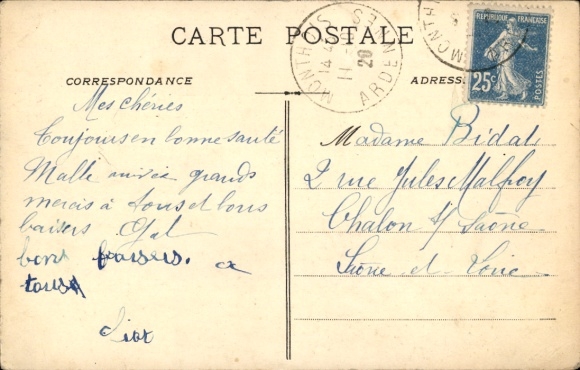 CARTE POSTALE
CORRESPONDANCE
ADRESSE
Mes chéries
Toujours en bonne santé
Malle arrivée grands
mercis à tous et bons
baisers
bons baisers. a
tous
MONTHOIS
ARDENNES
14-4
11
20
MONTH
REPUBLIQUE FRANÇAISE
25c
POSTES
Madame Bidal
2 rue Jules Malfroy
Chalon s/ Saône
Saône et Loire